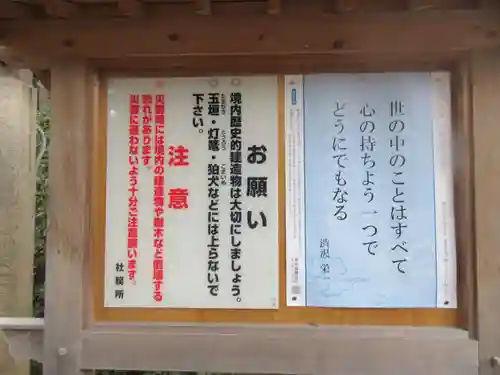 お願い
○境内歴史的建造物は大切にしましょう。
○玉垣・灯篭・狛犬などには上らないで
下さい。
注意
※災害時には境内の建造物や樹木など倒壊する
恐れがあります。
災害に遭わないよう十分ご注意願います。
社務所
世の中のことはすべて
心の持ちよう一つで
どうにでもなる
渋沢 栄一